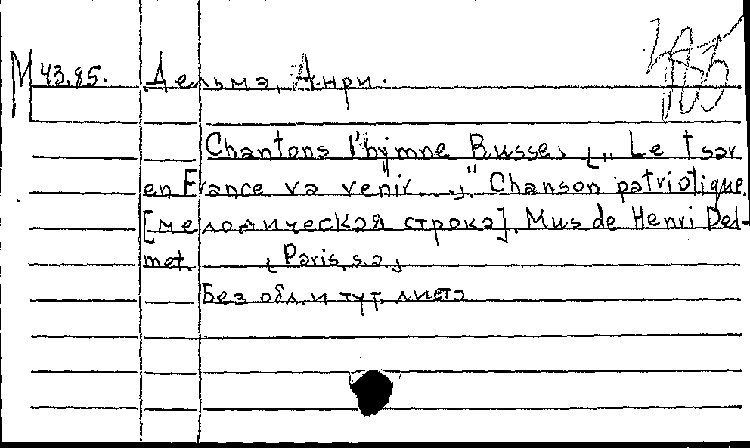 М 43.85. Дельмэ, Анри.
Chantons l'hymne Russe, [„Le tsar
en France va venir....„" Chanson patriotique.
[мелодическая строка]. Mus de Henri Del-
met. [Paris, s.a.]
Без обл. и тит. листа